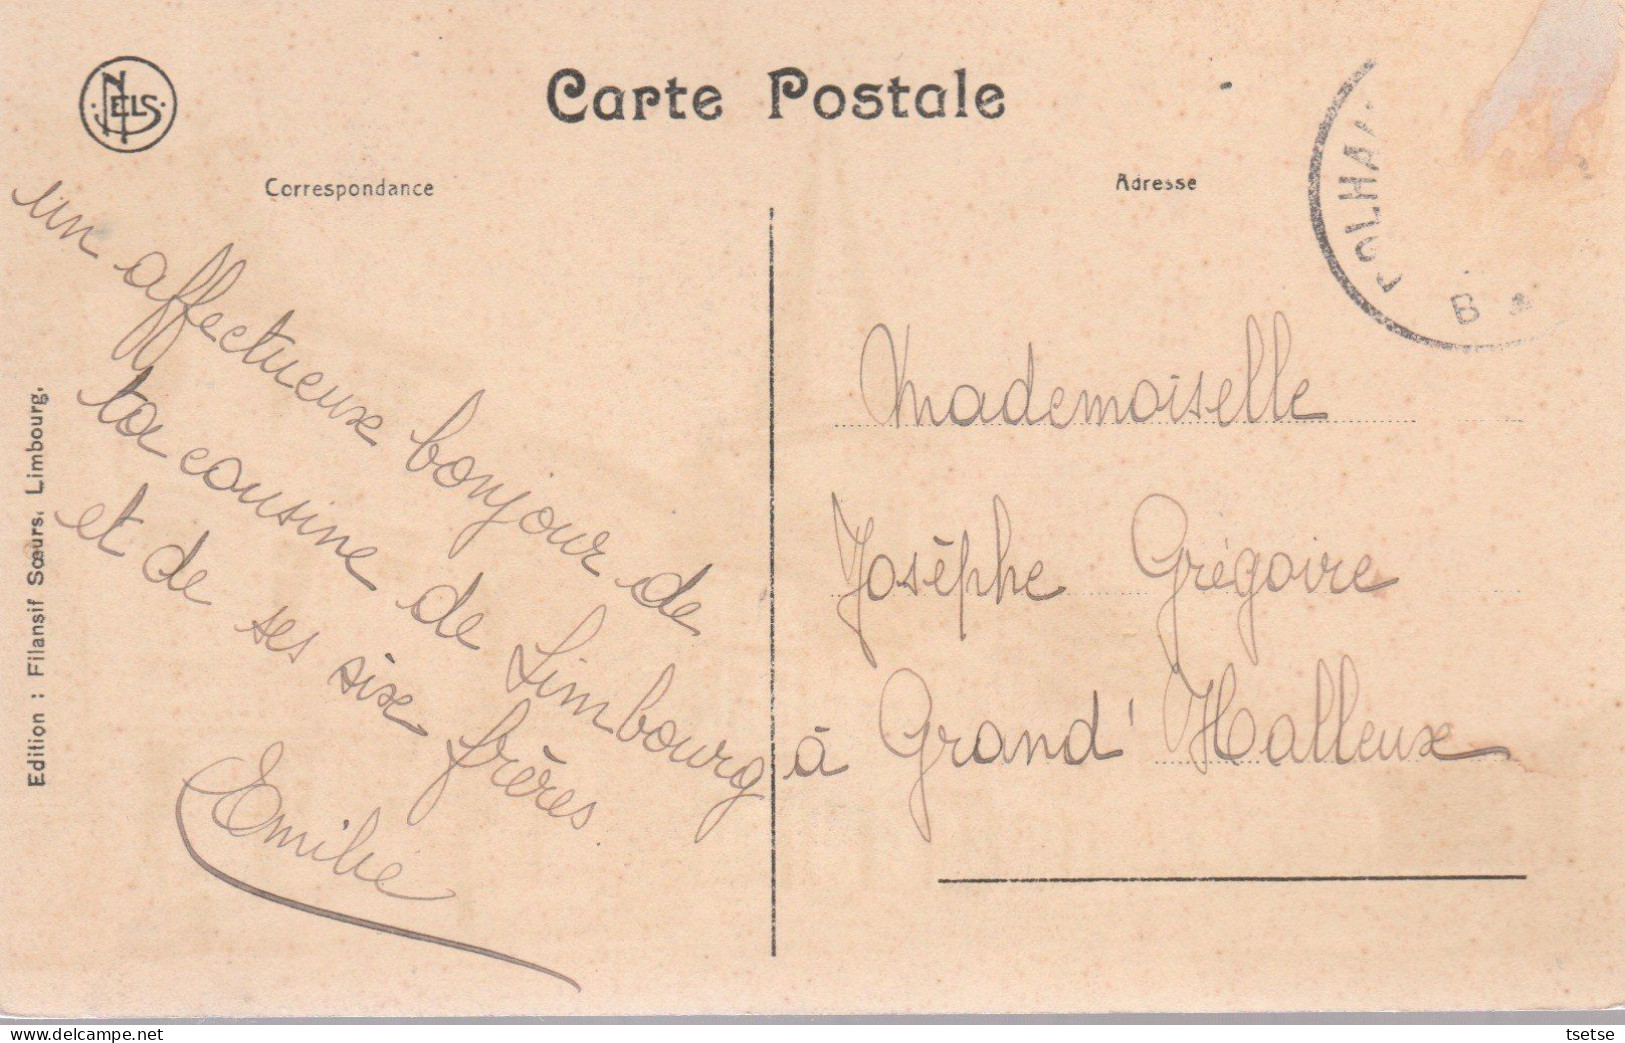 NELS
Carte Postale
Correspondance
Adresse
un affectueux bonjour de
ta cousine de Limbourg
et de ses six frères
Emilie
Mademoiselle
Josèphe Grégoire
à Grand' Halleux
Edition : Filansif Sœurs. Limbourg.
B
delcampe.net
tsetse